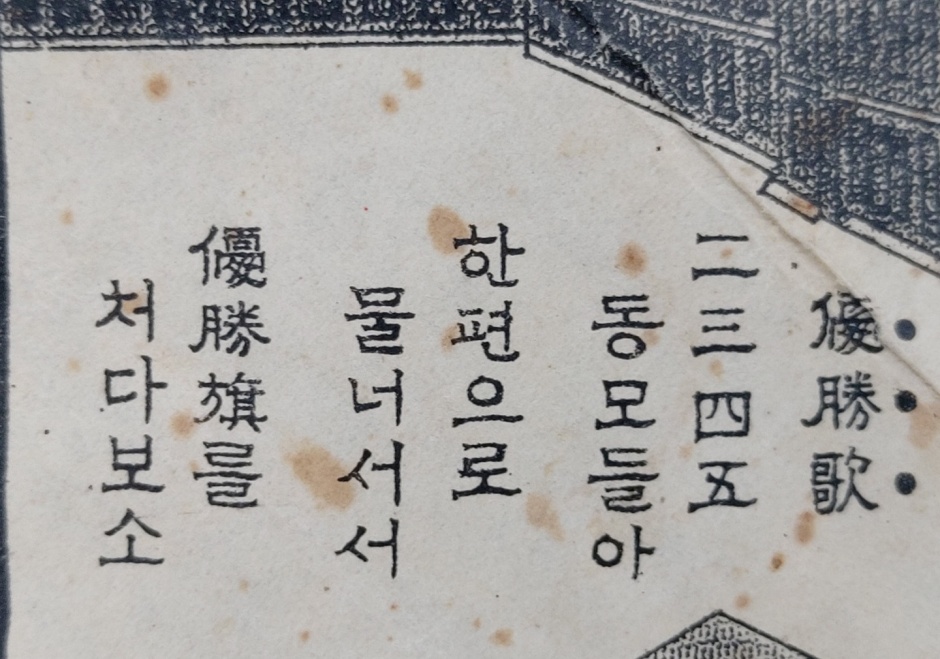 優勝歌
二三四五
동모들아
한편으로
물너서서
優勝旗를
처다보소